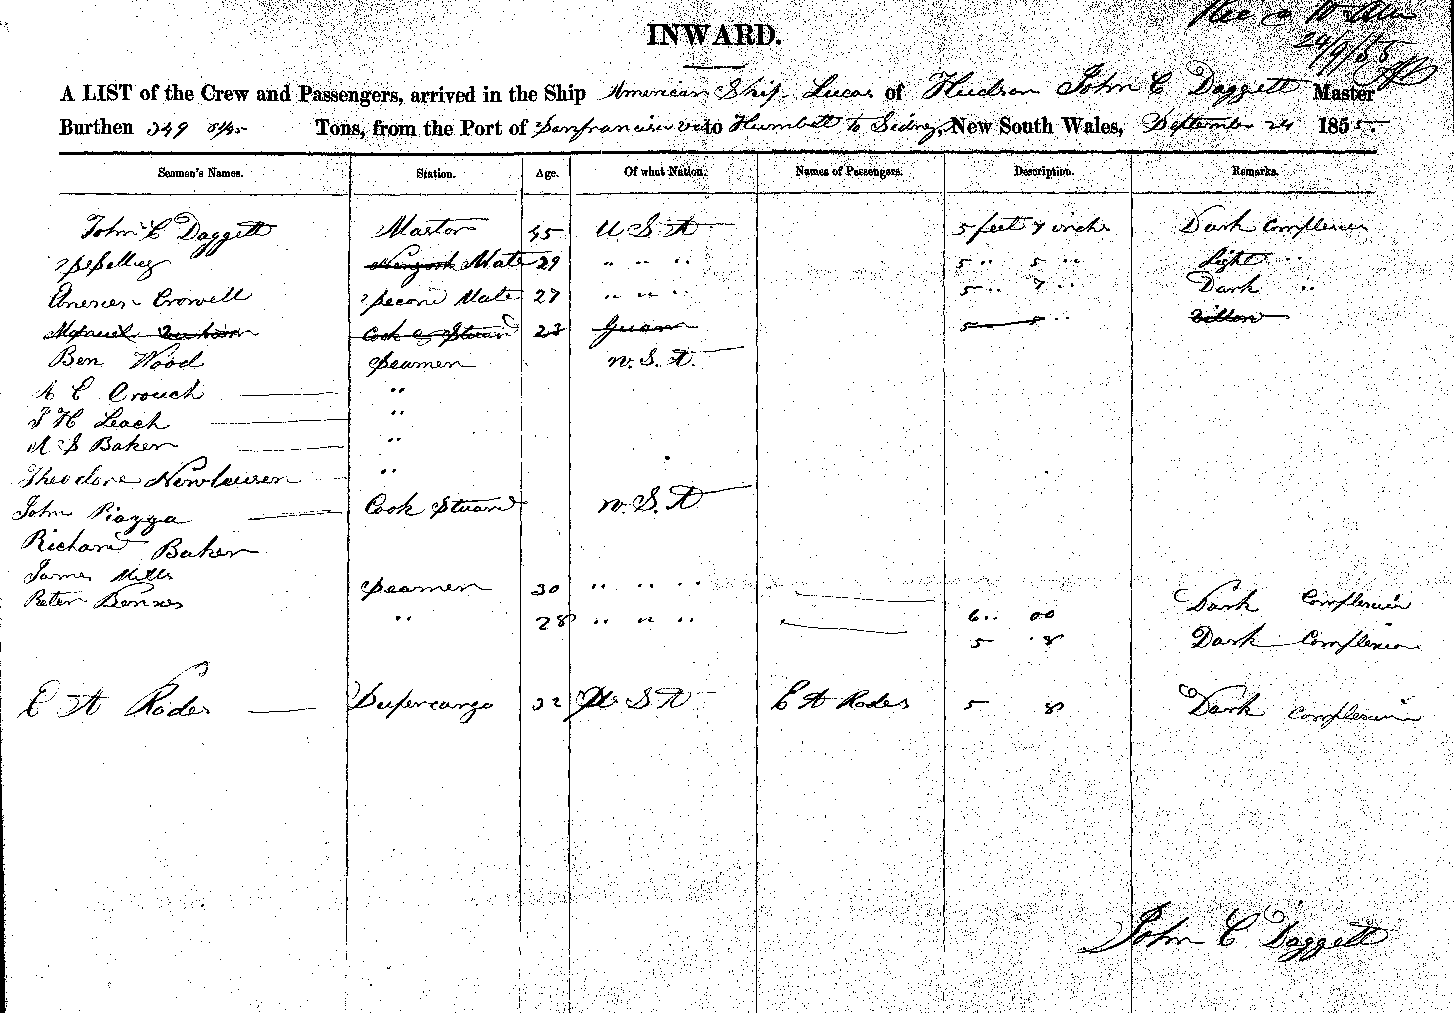 INWARD.
24/9/55
A LIST of the Crew and Passengers, arrived in the Ship American Ship Lucas of Hudson John C Daggett Master
Burthen 349 Tons, from the Port of Sanfrancisco to Humbolt to Sidney, New South Wales, September 24 1855.
Seamen's Names. Station. Age. Of what Nation. Names of Passengers. Description. Remarks.
John C Daggett Master 45 U S A 5 feet 7 inchs Dark Complexion
Mate 29 " " " 5 " 5 " light "
Crowell Second Mate 27 " " " 5 " 7 " Dark "
Cook & Stuard 23 Guam 5 5 "
Ben Wood Seamen U. S. A.
A C Crouch "
T H Leach "
A S Baker "
Theodore "
John Piazza Cook Stuard U. S. A
Richard Baker
James Mills Seamen 30 " " " Dark Complexion
Peter " 28 " " " 6 " 00
5 8 Dark Complexion
E A Rodes Supercargo 32 U S A E A Rodes 5 8 Dark Complexion
John C Daggett